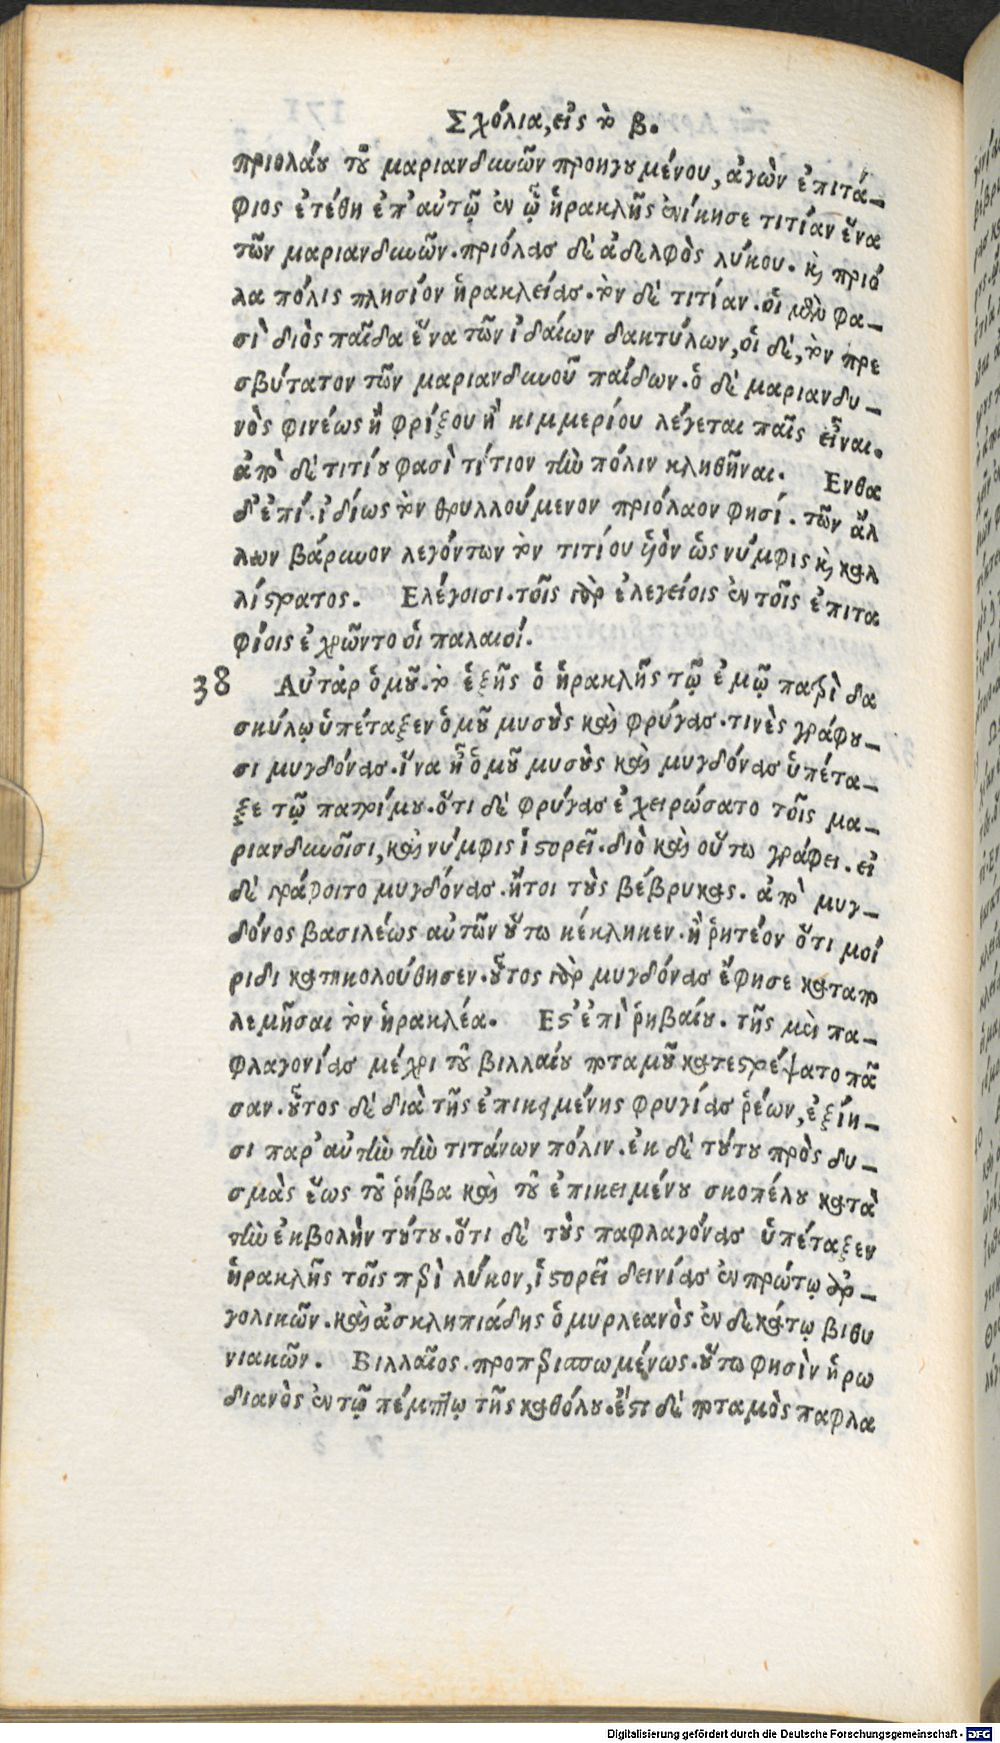 Σχόλια, εἰς τὸ β.
πριολάου τοῦ μαριανδυνῶν προηγουμένου, ἀγὼν ἐπιτά-
φιος ἐτέθη ἐπ' αὐτῷ ἐν ᾧ ἡρακλῆς ἐνίκησε τιτίαν ἕνα
τῶν μαριανδυνῶν. πριόλας δὲ ἀδελφὸς λύκου. καὶ πριό
λα πόλις πλησίον ἡρακλείας. τὸν δὲ τιτίαν. οἱ μὲν φα-
σὶ διὸς παῖδα ἕνα τῶν ἰδαίων δακτύλων, οἱ δὲ, τὸν πρε
σβύτατον τῶν μαριανδυνοῦ παίδων. ὁ δὲ μαριανδυ-
νὸς φινέως ἢ φρίξου ἢ κιμμερίου λέγεται παῖς εἶναι.
ἀπὸ δὲ τιτίου φασὶ τίτιον τὴν πόλιν κληθῆναι. Ενθα
δ' ἐπί. ἰδίως τὸν θρυλλούμενον πριόλαον φησί. τῶν ἄλ
λων βάρυνον λεγόντων τὸν τιτίου υἱὸν ὡς νύμφις καὶ καλ
λίστρατος. Ελέγοισι. τοῖς γὰρ ἐλεγείοις ἐν τοῖς ἐπιτα
φίοις ἐχρῶντο οἱ παλαιοί.
38 Αὐτὰρ ὁμοῦ. τὸ ἑξῆς ὁ ἡρακλῆς τῷ ἐμῷ πατρὶ δα
σκύλῳ ὑπέταξεν ὁμοῦ μυσοὺς καὶ φρύγας. τινὲς γράφου-
σι μυγδόνας. ἵνα ᾖ ὁμοῦ μυσοὺς καὶ μυγδόνας ὑπέτα-
ξε τῷ πατρί μου. ὅτι δὲ φρύγας ἐχειρώσατο τοῖς μα-
ριανδυνοῖσι, καὶ νύμφις ἱστορεῖ. διὸ καὶ οὕτω γράφει. εἰ
δὲ γράφοιτο μυγδόνας. ἤτοι τοὺς βέβρυκας. ἀπὸ μυγ-
δόνος βασιλέως αὐτῶν οὕτω κέκληκεν. ἢ ῥητέον ὅτι μοί
ριδι κατηκολούθησεν. οὗτος γὰρ μυγδόνας ἔφησε καταπο
λεμῆσαι τὸν ἡρακλέα. Εστ' ἐπὶ ῥηβαίου. τῆς μὲν πα-
φλαγονίας μέχρι τοῦ βιλλαίου ποταμοῦ κατεστρέψατο πᾶ
σαν. οὗτος δὲ διὰ τῆς ἐπικειμένης φρυγίας ῥέων, ἐξίη-
σι παρ' αὐτὴν τὴν τιτάνων πόλιν. ἐκ δὲ τούτου πρὸς δυ-
σμὰς ἕως τοῦ ῥήβα καὶ τοῦ ἐπικειμένου σκοπέλου κατὰ
τὴν ἐκβολὴν τούτου. ὅτι δὲ τοὺς παφλαγόνας ὑπέταξεν
ἡρακλῆς τοῖς περὶ λύκον, ἱστορεῖ δεινίας ἐν πρώτῳ ἀρ-
γολικῶν. καὶ ἀσκληπιάδης ὁ μυρλεανὸς ἐν δεκάτῳ βιθυ
νιακῶν. Βιλλαῖος. προπερισπωμένως. οὕτω φησὶν ἡρω
διανὸς ἐν τῷ πέμπτῳ τῆς καθόλου. ἔστι δὲ ποταμὸς παφλα
Digitalisierung gefördert durch die Deutsche Forschungsgemeinschaft - DFG